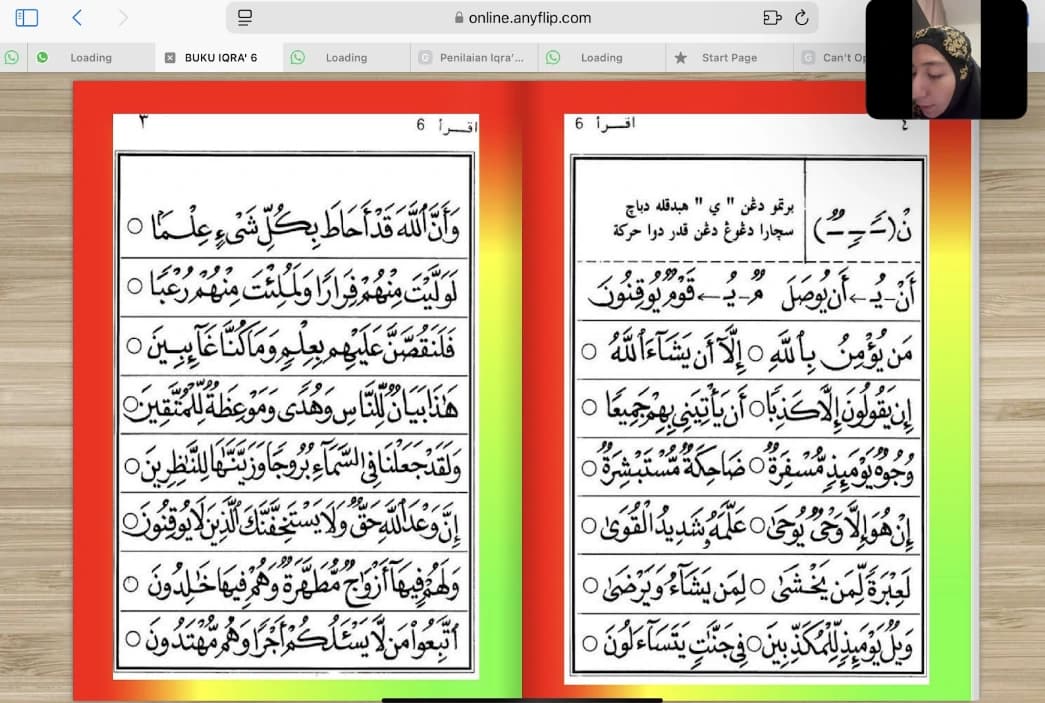 online.anyflip.com
Loading
BUKU IQRA' 6
Loading
Penilaian Iqra'...
Loading
Start Page
٣
اقـرأ 6
وَأَنَّ ٱللَّهَ قَدْ أَحَاطَ بِكُلِّ شَىْءٍ عِلْمًا
لَوَلَّيْتَ مِنْهُمْ فِرَارًا وَلَمُلِئْتَ مِنْهُمْ رُعْبًا
فَلَنَقُصَّنَّ عَلَيْهِم بِعِلْمٍ وَمَا كُنَّا غَآئِبِينَ
هَٰذَا بَيَانٌ لِّلنَّاسِ وَهُدًى وَمَوْعِظَةٌ لِّلْمُتَّقِينَ
وَلَقَدْ جَعَلْنَا فِى السَّمَآءِ بُرُوجًا وَزَيَّنَّٰهَا لِلنَّٰظِرِينَ
إِنَّ وَعْدَ ٱللَّهِ حَقٌّ وَلَا يَسْتَخِفَّنَّكَ الَّذِينَ لَا يُوقِنُونَ
وَلَهُمْ فِيهَآ أَزْوَٰجٌ مُّطَهَّرَةٌ وَهُمْ فِيهَا خَٰلِدُونَ
ٱتَّبِعُوا۟ مَن لَّا يَسْـَٔلُكُمْ أَجْرًا وَهُم مُّهْتَدُونَ
اقـرأ 6
٤
نْ (ـًـ ـٍـ ـٌـ)
برتمو دڠن " ي " هندقله دباچ
سچارا دڠوڠ دڠن قدر دوا حركة
أَنْ - يُـ ← أَن يُوصَلَ مٌ - يُـ ← قَوْمٌ يُوقِنُونَ
مَن يُؤْمِنُ بِٱللَّهِ ○ إِلَّآ أَن يَشَآءَ ٱللَّهُ
إِن يَقُولُونَ إِلَّا كَذِبًا ○ أَن يَأْتِيَنِى بِهِمْ جَمِيعًا
وُجُوهٌ يَوْمَئِذٍ مُّسْفِرَةٌ ○ ضَاحِكَةٌ مُّسْتَبْشِرَةٌ
إِنْ هُوَ إِلَّا وَحْىٌ يُوحَىٰ ○ عَلَّمَهُۥ شَدِيدُ الْقُوَىٰ
لَعِبْرَةً لِّمَن يَخْشَىٰ ○ لِمَن يَشَآءُ وَيَرْضَىٰ
وَيْلٌ يَوْمَئِذٍ لِّلْمُكَذِّبِينَ ○ فِى جَنَّٰتٍ يَتَسَآءَلُونَ